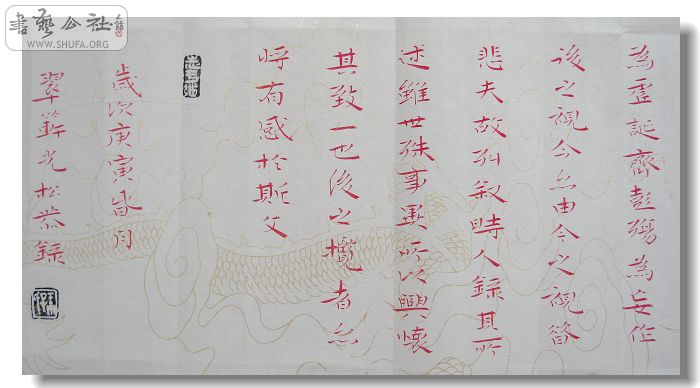 書藝公社
WWW.SHUFA.ORG
為虛誕齊彭殤為妄作
後之視今亦由今之視昔
悲夫故列叙時人錄其所
述雖世殊事異所以興懷
其致一也後之攬者亦
將有感於斯文
歲次庚寅夏月
翠光松恭錄